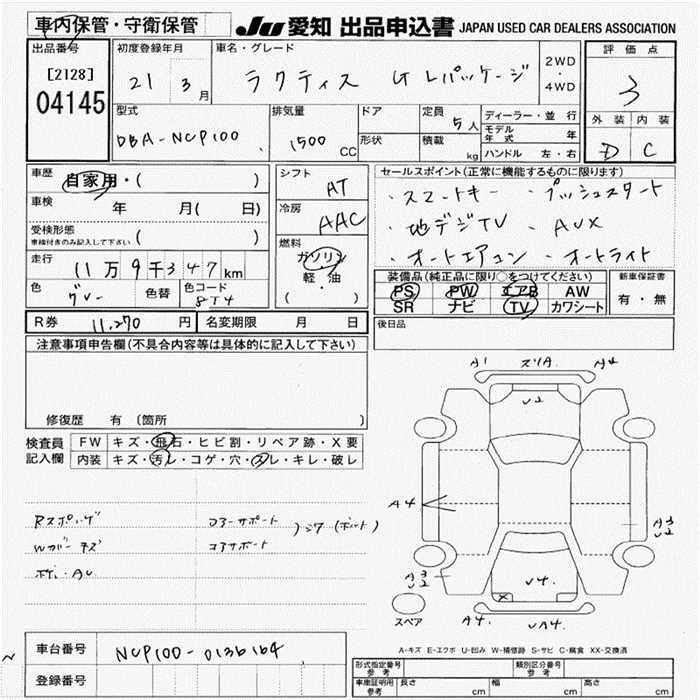 車内保管・守衛保管
JU 愛知 出品申込書 JAPAN USED CAR DEALERS ASSOCIATION
出品番号
[2128]
04145
初度登録年月
21 3月
車名・グレード
ラクティス G Lパッケージ
2WD・4WD
評価点
3
外装 内装
D C
型式
DBA-NCP100
排気量
1500 CC
ドア
形状
定員
5人
積載
kg
ディーラー・並行
モデル年式 年
ハンドル 左・右
車歴
自家用・( )
車検 年 月( 日)
受検形態
車検付きのみ記入して下さい ( )
走行
11万9千347km
色
グレー
色替
色コード
8T4
シフト
AT
冷房
AAC
燃料
ガソリン
軽・油
( )
セールスポイント(正常に機能するものに限ります)
・スマートキー ・プッシュスタート
・地デジTV ・AUX
・オートエアコン ・オートライト
装備品(純正品に限り○をつけてください)
PS PW エアB AW
SR ナビ TV カワシート
新車保証書
有・無
R券 11,270円 名変期限 月 日
後日品
注意事項申告欄(不具合内容等は具体的に記入して下さい)
修復歴 有 〔箇所 〕
検査員記入欄
FW キズ・飛石・ヒビ割・リペア跡・X要
内装 キズ・汚レ・コゲ・穴・スレ・キレ・破レ
コアサポート
A1 スリA A4
U2
A4
A3
U2
A3
U2
U4
X
スペア
A4 UA4
A-キズ E-エクボ U-凹み W-補修跡 S-サビ C-腐食 XX-交換済
車台番号 NCP100-0136164
登録番号
形式指定番号 参考
類別区分番号 参考
車庫証明用 参考
長さ cm 幅 cm 高さ cm